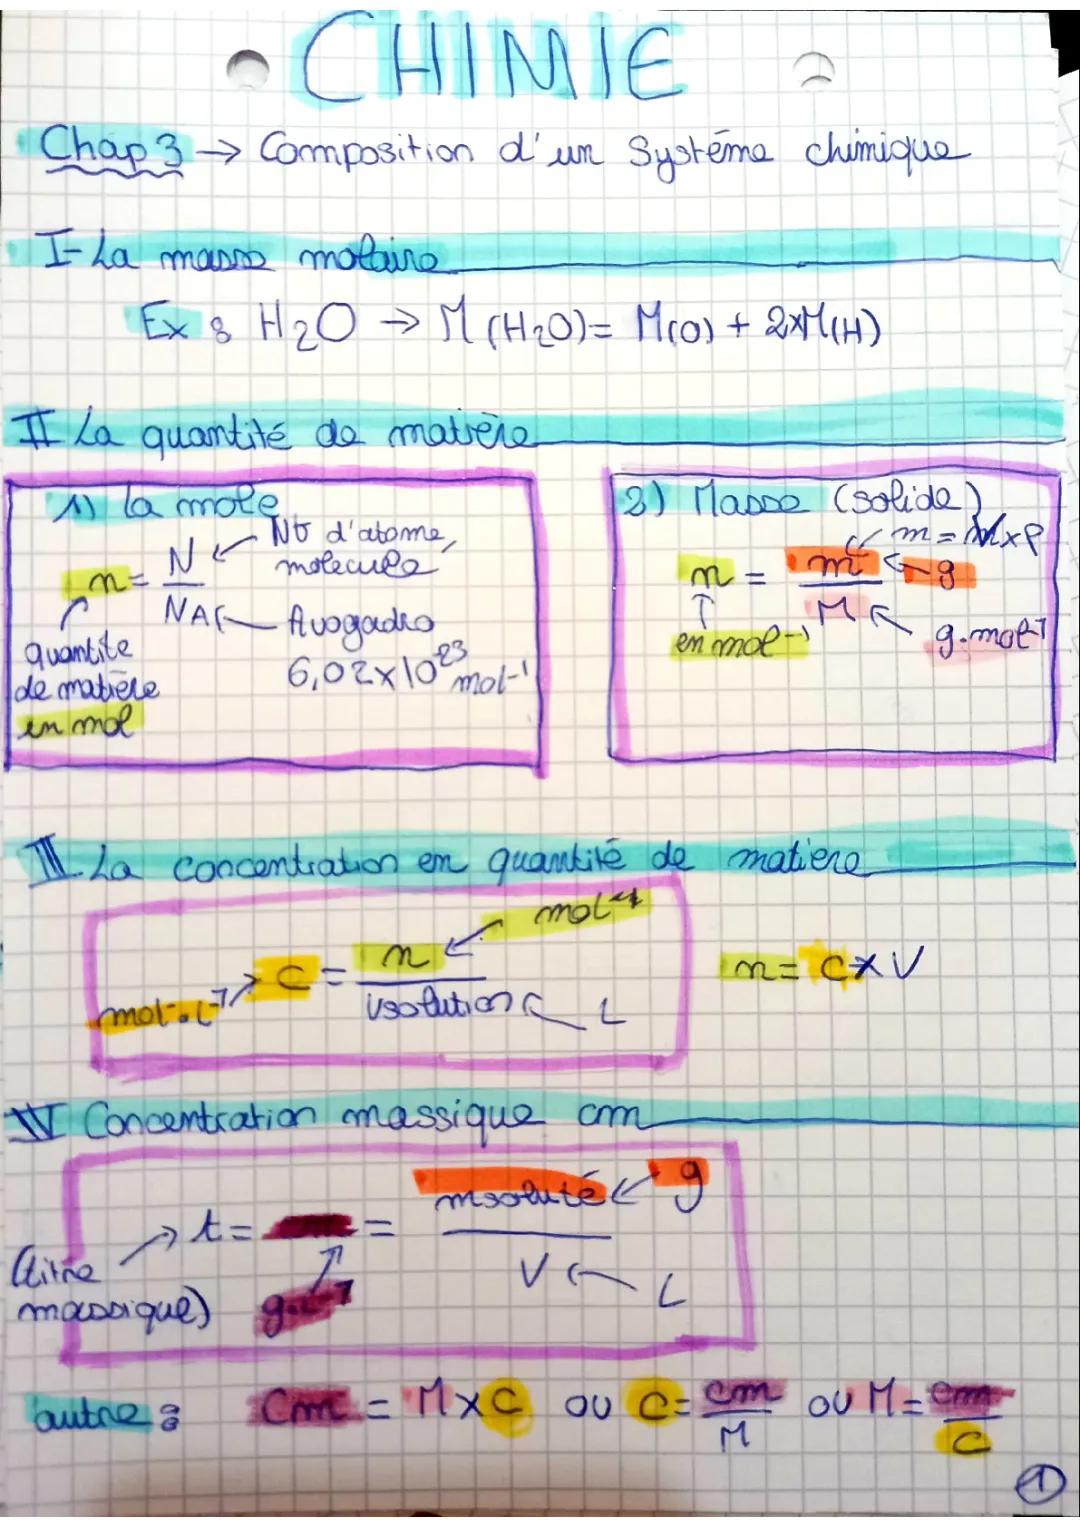 CHIMIE
Chap 3 → Composition d'un Système chimique
I- La masse molaire
Ex : H₂O → M(H₂O) = M(O) + 2xM(H)
II La quantité de matière
1) La mole
n = N / NA
Nb d'atome, molécule
Avogadro
6,02x10²³ mol⁻¹
quantité
de matière
en mol
2) Masse (solide)
n = m / M
g
en mol⁻¹
g.mol⁻¹
III. La concentration en quantité de matière
C = n / Vsolution
mol⁻¹
mol.L⁻¹
L
n = C x V
IV Concentration massique cm
t = cm = msoluté / V
g
L
(titre
massique)
g.L⁻¹
autre : Cm = M x C ou C = cm / M ou M = cm / C
1